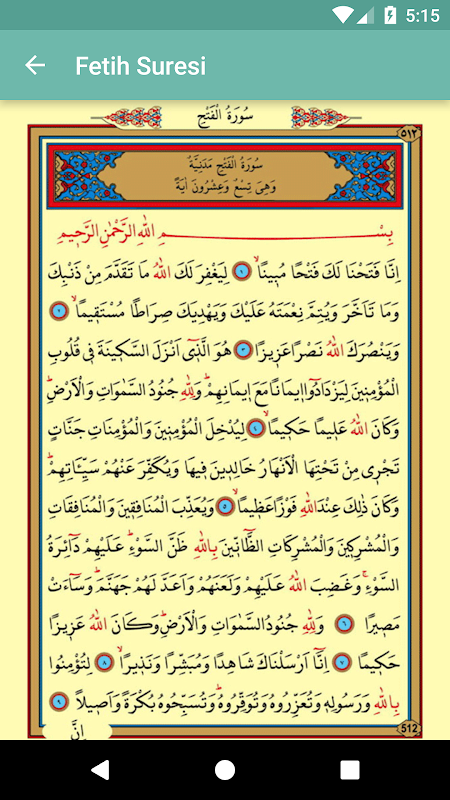 5:15
Fetih Suresi
سُورَةُ الْفَتْحِ
٥١٢
سُورَةُ الْفَتْحِ مَدَنِيَّةٌ
وَهِيَ تِسْعٌ وَعِشْرُونَ اٰيَةً
بِسْمِ اللّٰهِ الرَّحْمٰنِ الرَّحٖيمِ
اِنَّا فَتَحْنَا لَكَ فَتْحًا مُبٖينًاۙ ١ لِيَغْفِرَ لَكَ اللّٰهُ مَا تَقَدَّمَ مِنْ ذَنْبِكَ
وَمَا تَاَخَّرَ وَيُتِمَّ نِعْمَتَهُ عَلَيْكَ وَيَهْدِيَكَ صِرَاطًا مُسْتَقٖيمًاۙ ٢
وَيَنْصُرَكَ اللّٰهُ نَصْرًا عَزٖيزًا ٣ هُوَ الَّذٖٓى اَنْزَلَ السَّكٖينَةَ فٖى قُلُوبِ
الْمُؤْمِنٖينَ لِيَزْدَادُٓوا اٖيمَانًا مَعَ اٖيمَانِهِمْۜ وَلِلّٰهِ جُنُودُ السَّمٰوَاتِ وَالْاَرْضِۜ
وَكَانَ اللّٰهُ عَلٖيمًا حَكٖيمًاۙ ٤ لِيُدْخِلَ الْمُؤْمِنٖينَ وَالْمُؤْمِنَاتِ جَنَّاتٍ
تَجْرٖى مِنْ تَحْتِهَا الْاَنْهَارُ خَالِدٖينَ فٖيهَا وَيُكَفِّرَ عَنْهُمْ سَيِّـَٔاتِهِمْۜ
وَكَانَ ذٰلِكَ عِنْدَ اللّٰهِ فَوْزًا عَظٖيمًاۙ ٥ وَيُعَذِّبَ الْمُنَافِقٖينَ وَالْمُنَافِقَاتِ
وَالْمُشْرِكٖينَ وَالْمُشْرِكَاتِ الظَّٓانّٖينَ بِاللّٰهِ ظَنَّ السَّوْءِۜ عَلَيْهِمْ دَٓائِرَةُ
السَّوْءِۚ وَغَضِبَ اللّٰهُ عَلَيْهِمْ وَلَعَنَهُمْ وَاَعَدَّ لَهُمْ جَهَنَّمَۜ وَسَٓاءَتْ
مَصٖيرًا ٦ وَلِلّٰهِ جُنُودُ السَّمٰوَاتِ وَالْاَرْضِۜ وَكَانَ اللّٰهُ عَزٖيزًا
حَكٖيمًا ٧ اِنَّٓا اَرْسَلْنَاكَ شَاهِدًا وَمُبَشِّرًا وَنَذٖيرًاۙ ٨ لِتُؤْمِنُوا
بِاللّٰهِ وَرَسُولِهٖ وَتُعَزِّرُوهُ وَتُوَقِّرُوهُۜ وَتُسَبِّحُوهُ بُكْرَةً وَاَصٖيلًا ٩
اِنَّ
512